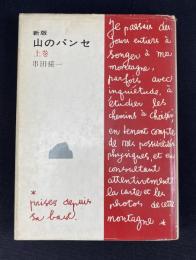 新版
山のパンセ
上巻
串田孫一
Je passais des
jours entiers à
songer à ma
montagne,
parfois avec
inquiétude, à
étudier les
chemins à choisir,
en tenant compte
de mes possibilités
physiques, et en
consultant
attentivement
la carte et les
photos de cette
montagne *
* prises depuis
sa base.